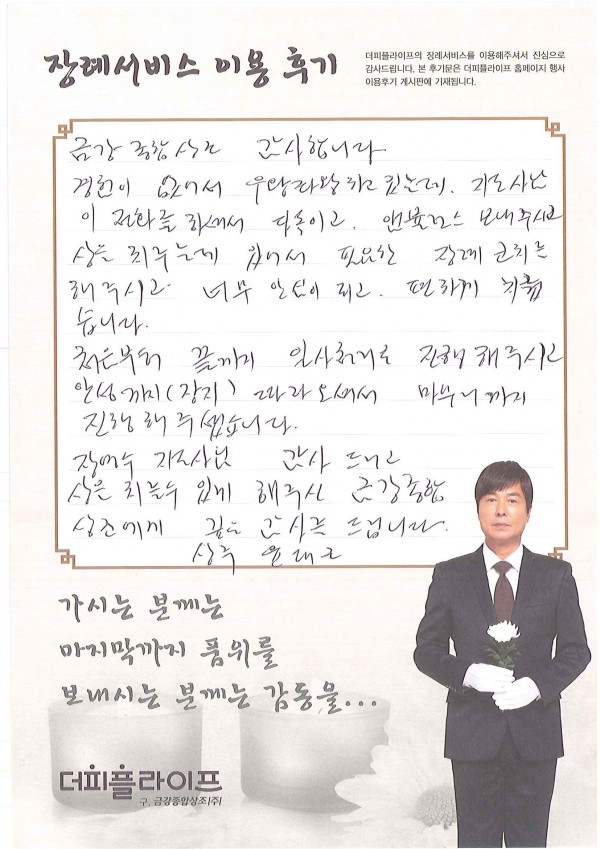 장례서비스 이용 후기
더피플라이프의 장례서비스를 이용해주셔서 진심으로
감사드립니다. 본 후기문은 더피플라이프 홈페이지 행사
이용후기 게시판에 기재됩니다.
금강종합상조 감사합니다.
경험이 없어서 우왕좌왕하고 있는데, 지도사님
이 전화를 하셔서 다독이고, 앰뷸런스 보내주시고
상을 치루는데 있어서 필요한 장례 준비를
해주시고 너무 안심이 되고, 편하게 치뤘
습니다.
처음부터 끝까지 일사천리로 진행해주시고
안성까지(장지) 따라오셔서 마무리까지
진행해주셨습니다.
지도사님 감사드리고
상을 치를수 있게 해주신 금강종합
상조에게 깊은 감사를 드립니다.
상주 윤
가시는 분께는
마지막까지 품위를
보내시는 분께는 감동을...
더피플라이프
구. 금강종합상조(주)